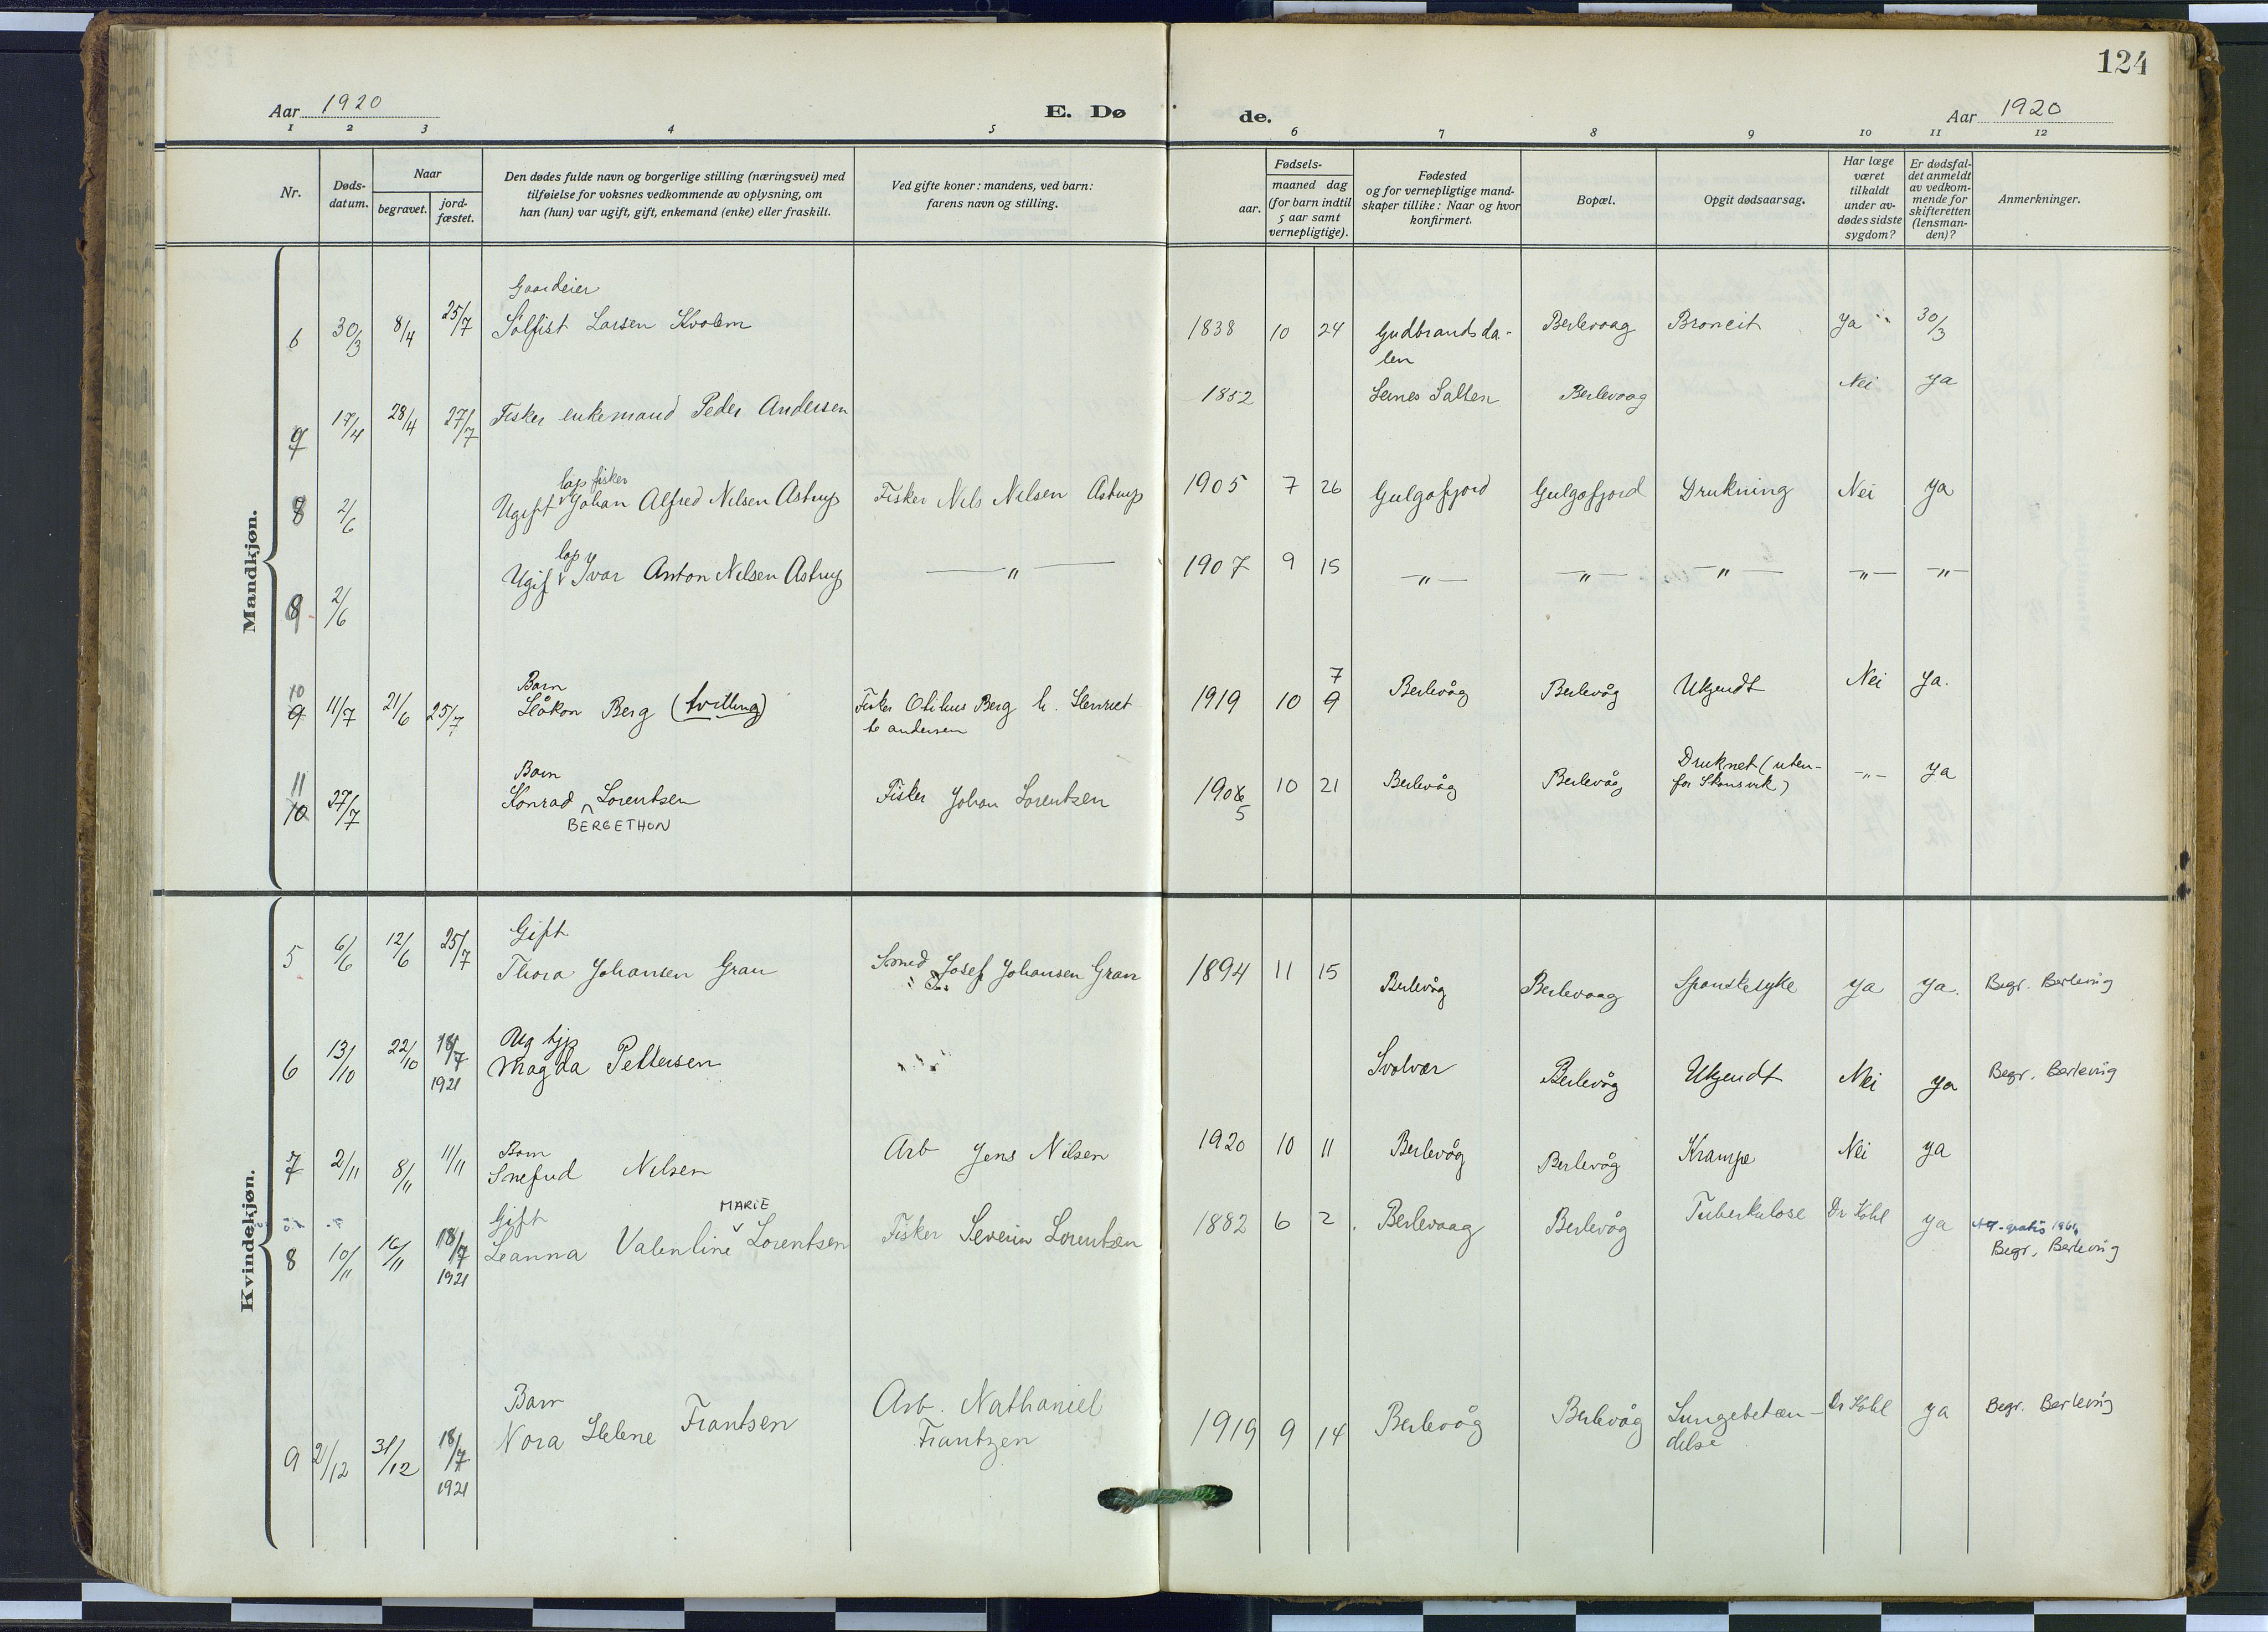 124
Aar 1920 E. Dø de. Aar 1920
1 2 3 4 5 6 7 8 9 10 11 12
Nr.
Døds-
datum.
Naar
begravet.
jord-
fæstet.
Den dødes fulde navn og borgerlige stilling (næringsvei) med
tilføielse for voksnes vedkommende av oplysning, om
han (hun) var ugift, gift, enkemand (enke) eller fraskilt.
Ved gifte koner: mandens, ved barn:
farens navn og stilling.
Fødsels-
aar.
maaned dag
(for barn indtil
5 aar samt
vernepligtige).
Fødested
og for vernepligtige mand-
skaper tillike: Naar og hvor
konfirmert.
Bopæl.
Opgit dødsaarsag.
Har læge
været
tilkaldt
under av-
dødes sidste
sygdom?
Er dødsfal-
det anmeldt
av vedkom-
mende for
skifteretten
(lensman-
den)?
Anmerkninger.
Mandkjøn.
Gaardeier
6 30/3 8/4 25/7 Sølfist Larsen Kvolem 1838 10 24 Gudbrandsda-
len Berlevaag Broncit ya 30/3
7 17/4 28/4 27/7 Fisker enkemand Peder Andersen 1852 Leines Salten Berlevaag Nei ya
lap fisker
8 2/6 Ugift Johan Alfred Nilsen Astrup Fisker Nils Nilsen Astrup 1905 7 26 Gulgofjord Gulgofjord Drukning Nei ya
lap
9 2/6 Ugif Ivar Anton Nilsen Astrup — " — 1907 9 15 — " — — " — — " — — " — — " —
Barn 7
10 9 11/7 21/6 25/7 Håkon Berg (tvilling) Fisker Otilius Berg h. Henriet
te andersen 1919 10 9 Berlevåg Berlevåg Ukjendt Nei ya.
Barn
11 10 27/7 Konrad Lorentsen
BERGETHON
Fisker Johan Lorentsen 1906 5 10 21 Berlevåg Berlevåg Druknet (uten-
for Skonsvik) — " — ya
Kvindekjøn.
Gift
5 6/6 12/6 25/7 Thora Johansen Gran Smed Josef Johansen Gran 1894 11 15 Berlevåg Berlevaag Spanskesyke ya ya. Begr. Berlevåg
Ug tjp
6 13/10 22/10 18/7
1921 Magda Pettersen Svolvær Berlevåg Ukjendt Nei ya Begr. Berlevåg
Barn
7 2/11 8/11 11/11 Snefrid Nilsen Arb Jens Nilsen 1920 10 11 Berlevåg Berlevåg Krampe Nei ya
Gift MARIE
8 10/11 16/11 18/7
1921 Leanna Valentine Lorentsen Fisker Severin Lorentsen 1882 6 2 Berlevaag Berlevåg Tuberkulose Dr Kohl ya gratis 1961
Begr. Berlevåg
Barn
9 21/12 31/12 18/7
1921 Nora Helene Frantsen Arb. Nathaniel
Frantzen 1919 9 14 Berlevåg Berlevåg Lungebetæn-
delse Dr Kohl ya Begr. Berlevåg